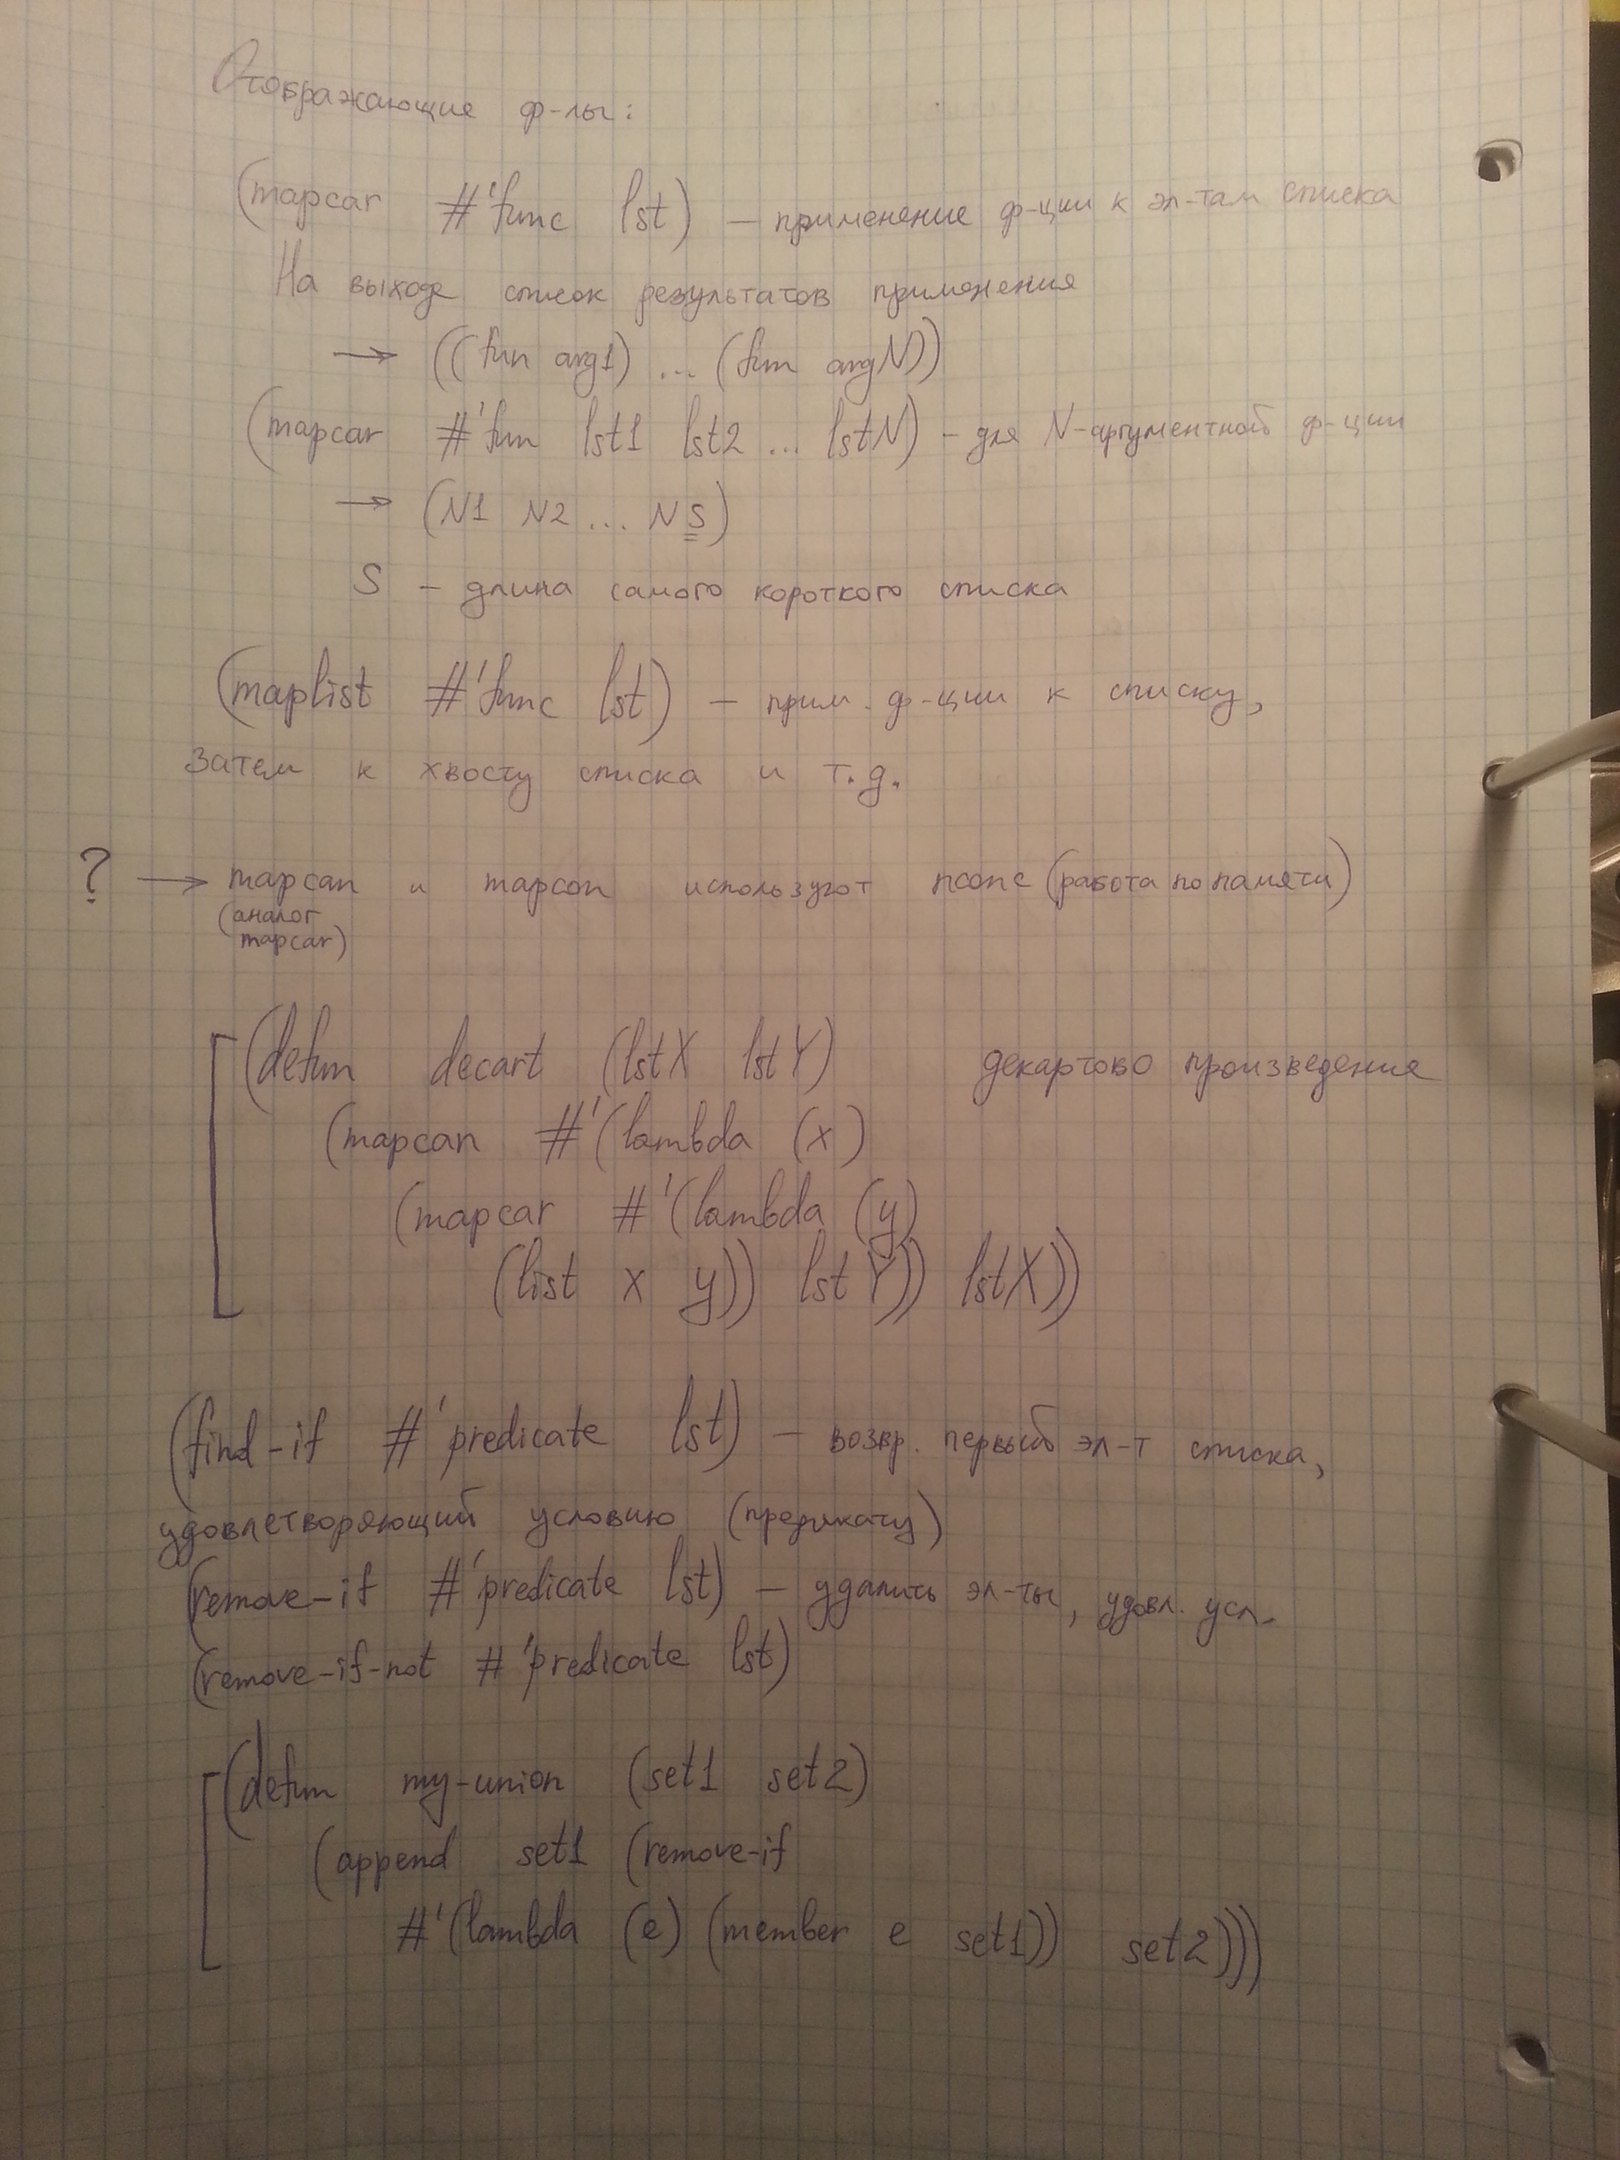 Отображающие ф-лы:
(mapcar #'func lst) – применение ф-ции к эл-там списка
На выходе список результатов применения
→ ((fun arg1) ... (fun argN))
(mapcar #'fun lst1 lst2 ... lstN) – для N-аргументной ф-ции
→ (N1 N2 ... NS)
S – длина самого короткого списка
(maplist #'func lst) – прим. ф-ции к списку,
затем к хвосту списка и т.д.
? → mapcan и mapcon используют nconc (работа по памяти)
(аналог
mapcar)
(defun decart (lstX lstY) декартово произведение
(mapcan #'(lambda (x)
(mapcar #'(lambda (y)
(list x y)) lstY)) lstX))
(find-if #'predicate lst) – возвр. первый эл-т списка,
удовлетворяющий условию (предикату)
(remove-if #'predicate lst) – удалить эл-ты, удовл. усл.
(remove-if-not #'predicate lst)
(defun my-union (set1 set2)
(append set1 (remove-if
#'(lambda (e) (member e set1)) set2)))